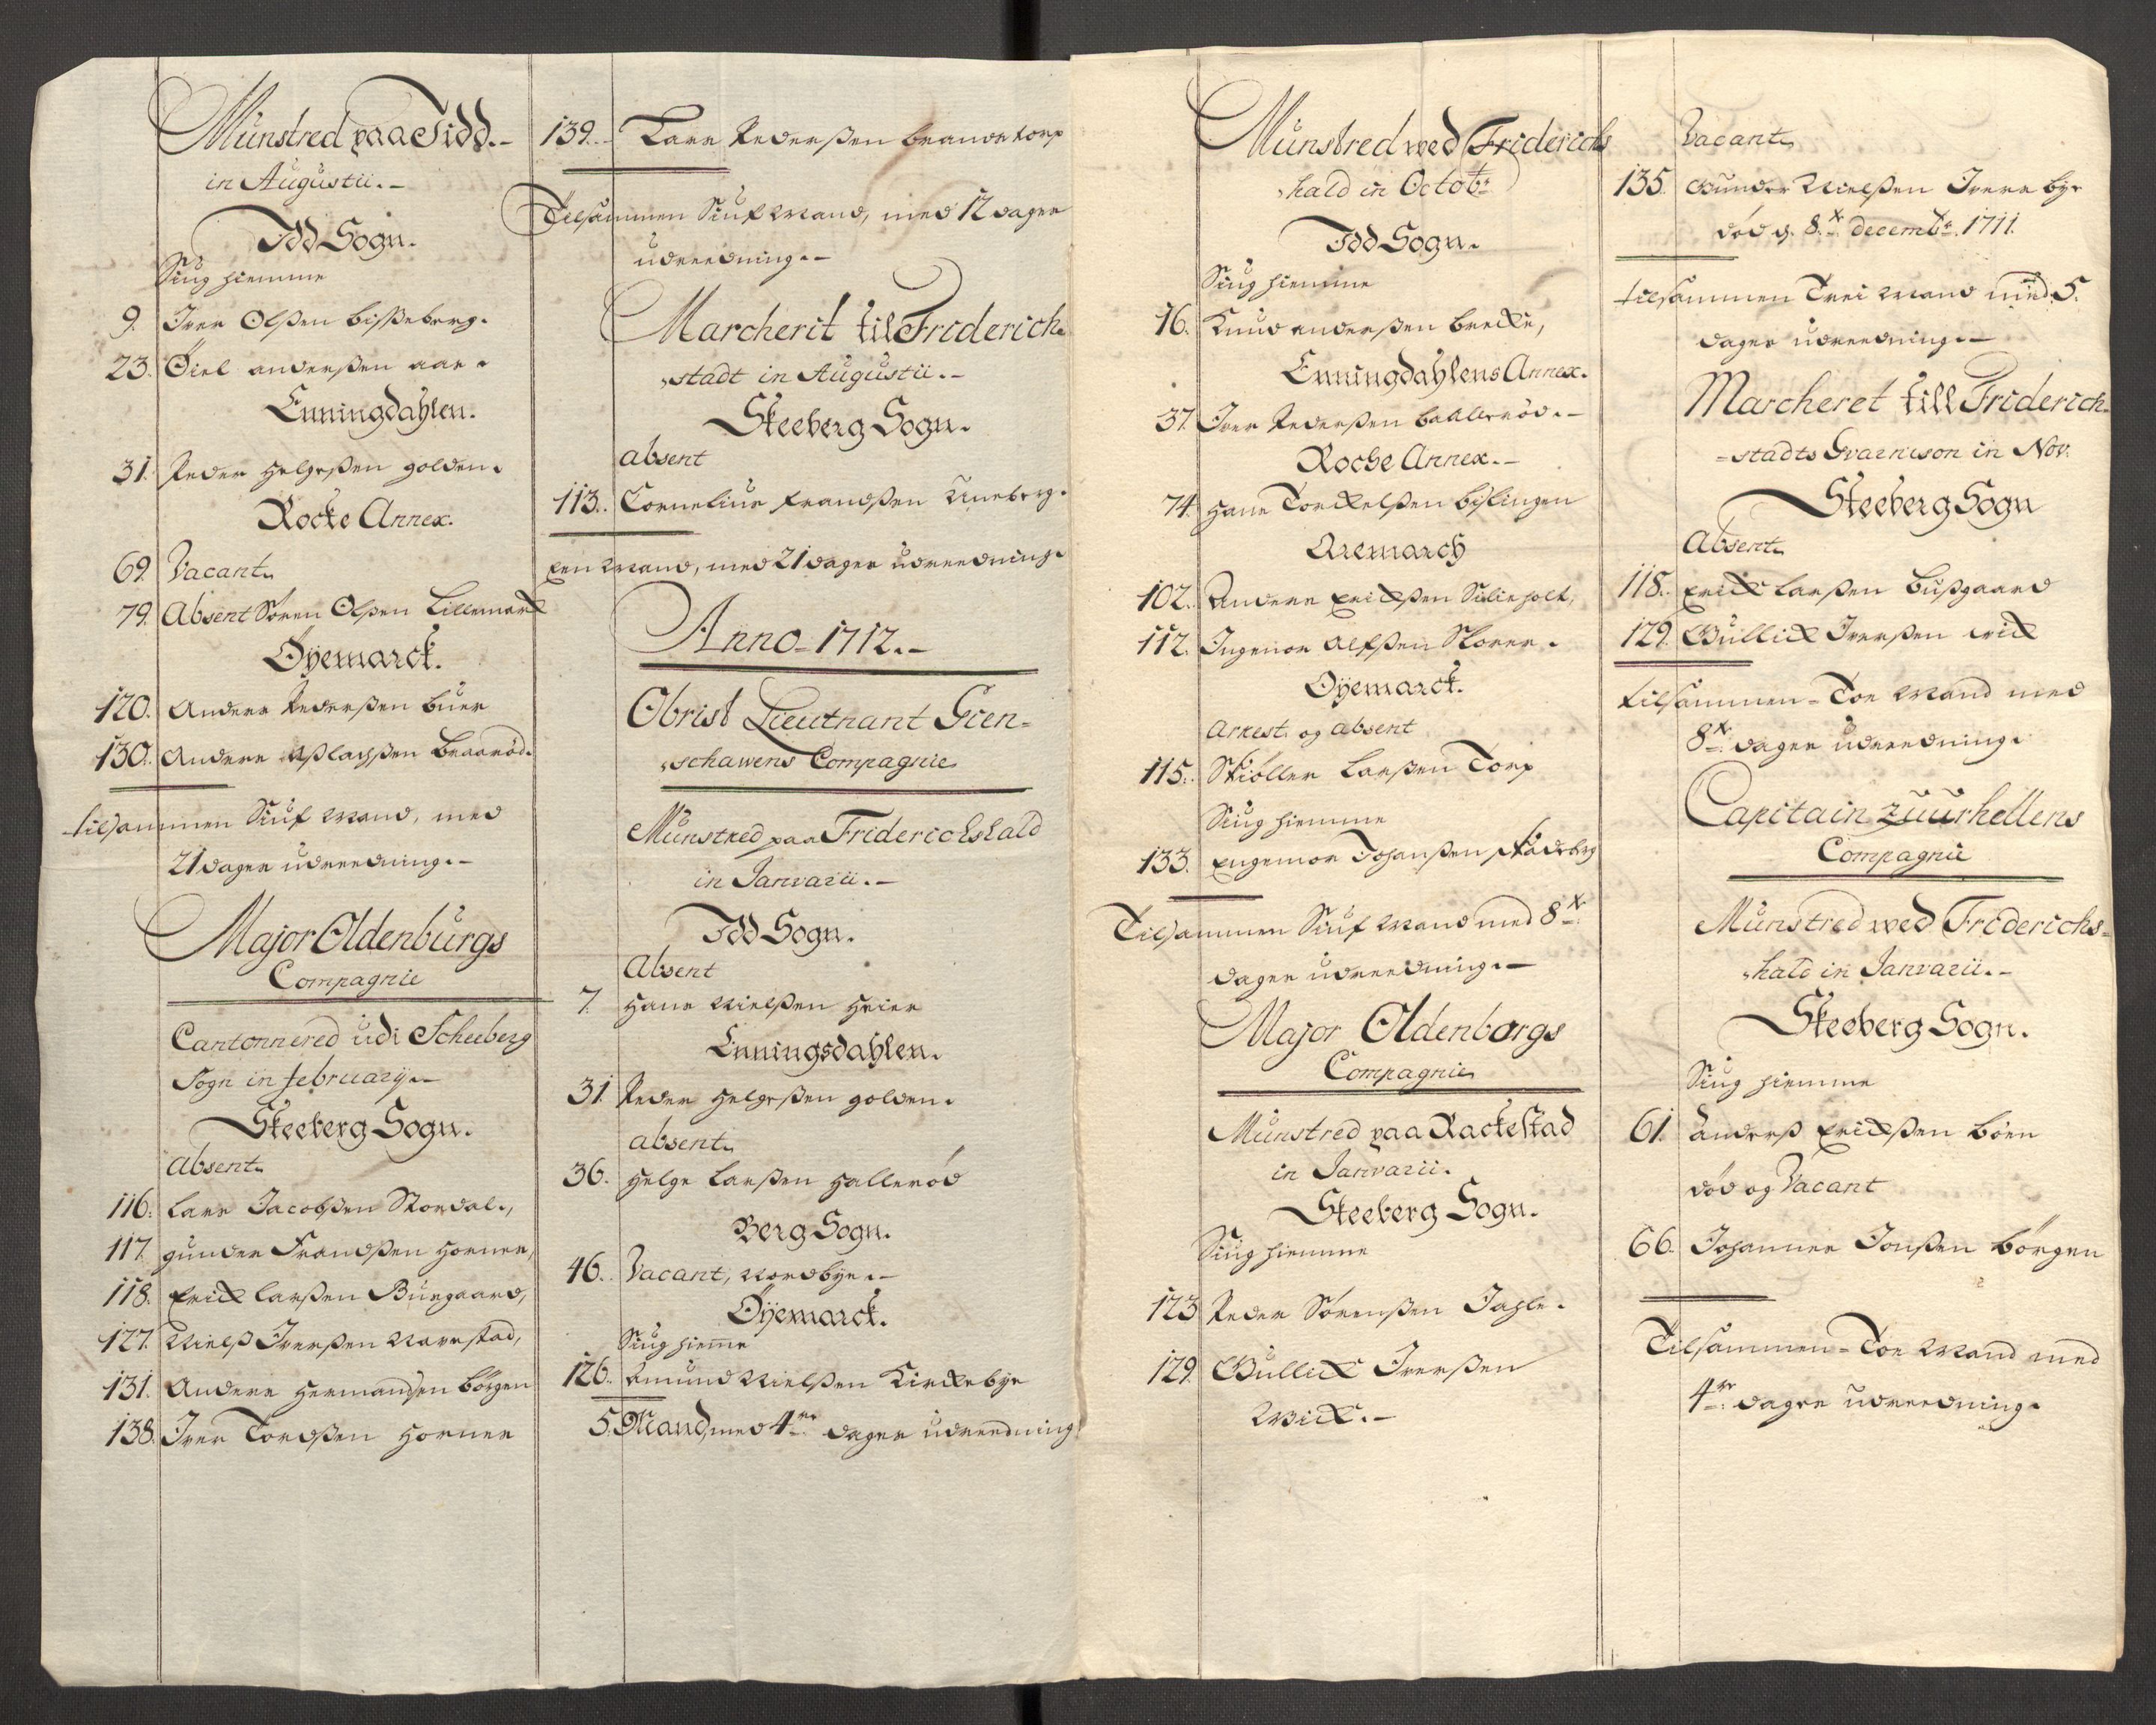 Münstred paa Tidd.-
in Augustii.-
Idd Sogn.
Siug hiemme
9. Iver Olßen bißeberg.
23. Öiel anderßen aar.
Enningdahlen.
31. Peder Helgeßen golden.
Rocke Annex.
69. Vacant
79. Absent Sören Olßen Lillemarck
Öyemarck.
120. Anders Pederßen buer
130. Anders Aßlachßen braaröd.
tilsammen Siuf Mand, med
21 dages udreedning.-
Major Oldenburgs
Compagnie
Cantonnered udi Scheeberg
Sogn in february.-
Skeeberg Sogn.
absent
116. Lars Jacobßen Stordal.,
117. gunder Frandßen Hornes,
118. Erick Larßen Buegaard,
127. Nielß Iverßen Navestad,
131. Anders Hermandsen börgen
138. Iver Tordßen Hornes
139. Lars Pederßen brandstorp
Tilsammen Siuf Mand, med 12 dages
udreedning.-
Marcherit til Friderich-
stadt in Augustii.-
Skeeberg Sogn.
absent
113. Cornelius Frandßen Uneberg.
Een Mand, med 21 dages udreedning.
Anno 1712.-
Obrist Lieutnant Gien-
schawens Compagnie
Münstred paa Friderichshald
in Janvarii.-
Idd Sogn.
Absent
7. Hans Nielßen Heier
Enningsdahlen.
31. Peder Helgeßen golden.
absent
36. Helge Larßen Halleröd
Berg Sogn.
46. Vacant, Nordbye.-
Öyemarck.
Siug hieme
126. Amund Nielßen Kirckebye
5. Mand, med 4re dages udreedning
Münstred wed Friderichs
hald in Octobr
Idd Sogn.
Siug hiemme
16. Knud anderßen brecke,
Enningdahlens Annex.
37. Iver Pederßen baAlleröd.-
Rocke Annex.-
74. Hans Torckelßen bislingen
Aremarch
102. Anders Erickßen Silieholt,
112. Ingemor Alfßen Skorer.
Öyemarck.
Arrest. og absent
115. Skiöller Larßen Torp
Siug hiemme
133. Engemor Johanßen Skadeberg
Tilsammen Siuf Mand med 8te
dages udreedning.-
Major Oldenborgs
Compagnie
Münstred paa Rackestad
in Janvarii.
Skeeberg Sogn.
Siug hiemme
123 Peder Sörenßen Jahle.
129. Gullick Iverßen
Wiick.-
Vacant
135. Gunder Nielßen Ivers bye
död d. 8te decembr. 1711.
tilsammen Trei Mand med 5.
dages udreedning.-
Marcheret till Friderich-
stadts Gvarnison in Nov.
Skeeberg Sogn
Absent
118. Erick Larßen Bußgaard
129. Gullick Iverßen wick
tilsammen - Toe Mand med
8te dages udreedning.
Capitain zuurhellens
Compagnie
Münstred wed Friderichs-
hald in Janvarii.-
Skeeberg Sogn.
Siug hiemme
61. Anderß Erickßen böen
död og Vacant
66. Johannes Jonßen börgen
Tilsammen - Toe Mand med
4re dages udreedning.